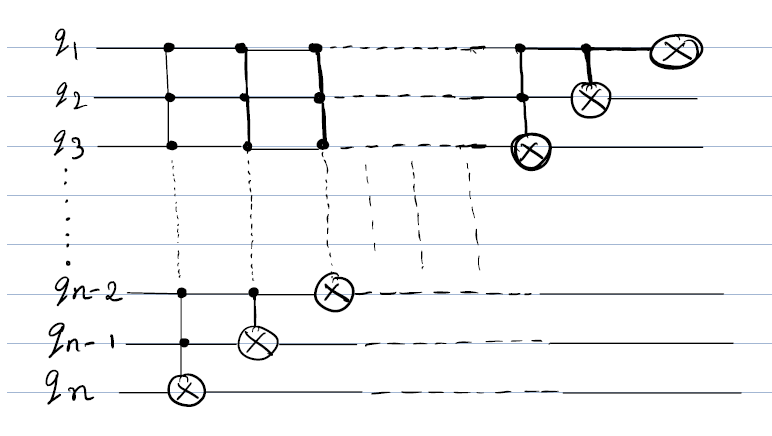 q1
q2
q3
qn-2
qn-1
qn